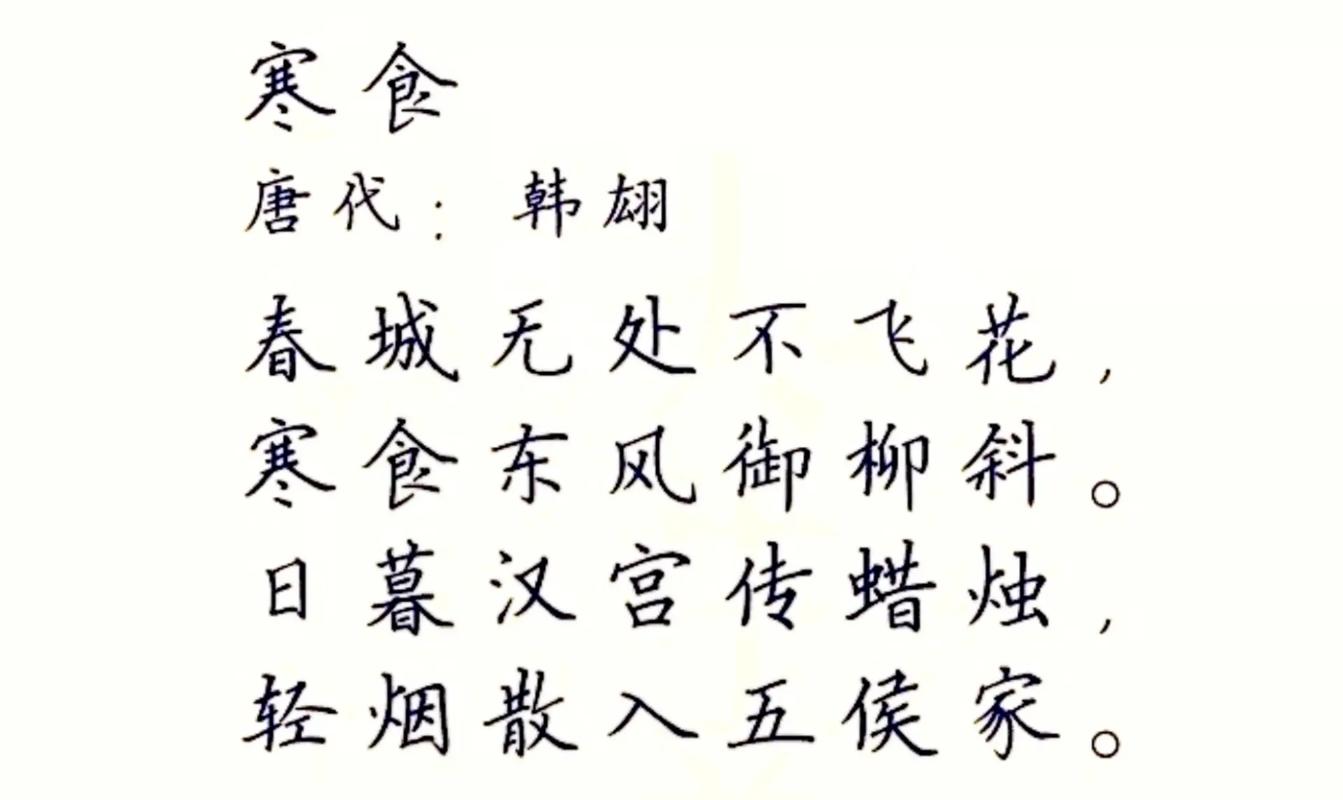 寒食
唐代：韩翃
春城无处不飞花，
寒食东风御柳斜。
日暮汉宫传蜡烛，
轻烟散入五侯家。